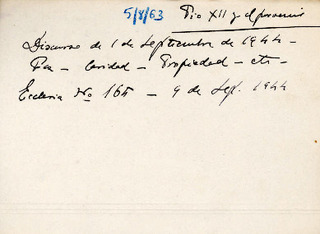 5/8/63 Pio XII y el porvenir
Discurso de 1 de Septiembre de 1944 -
Paz - Caridad - Propiedad - etc -
Ecclesia Nº 164 - 9 de Sept. 1944